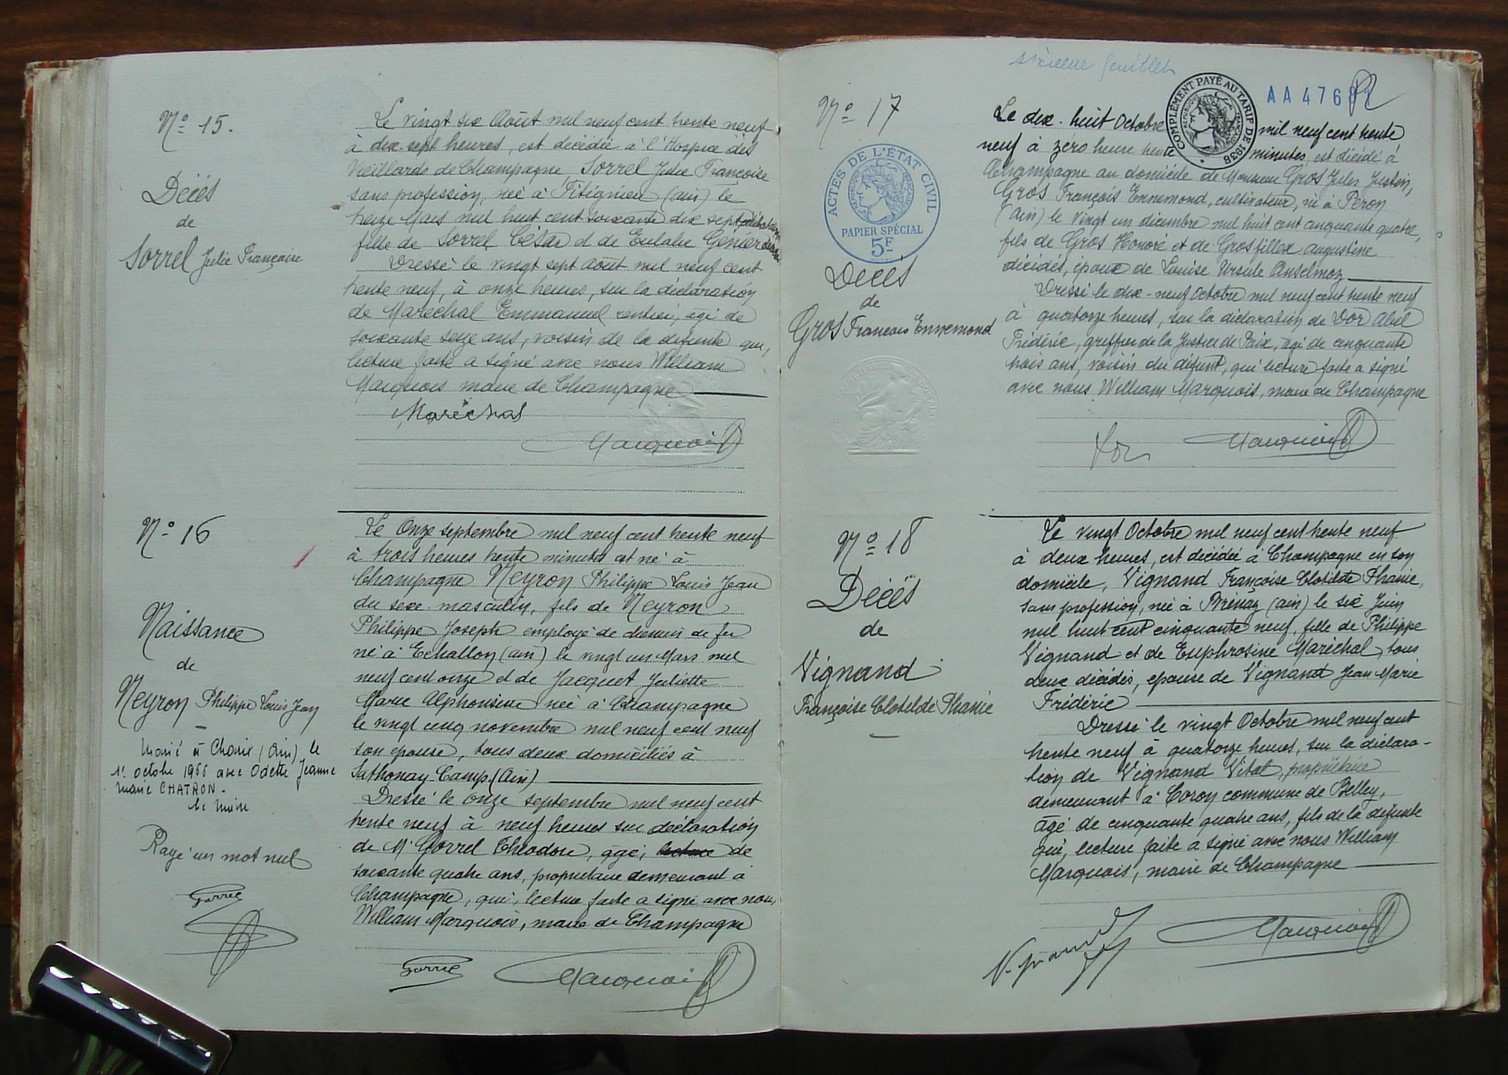 N° 15.
Décès
de
Sorrel Julie Françoise
Le vingt six Août mil neuf cent trente neuf
à dix sept heures, est décédée à l'Hospice des
Vieillards de Champagne, Sorrel Julie Françoise
sans profession, née à (ain) le
trente Mars mil huit cent soixante dix sept, célibataire
fille de Sorrel César et de Eulalie
Dressé le vingt sept août mil neuf cent
trente neuf, à onze heures, sur la déclaration
de Maréchal Emmanuel rentier, agé de
soixante seize ans, voisin de la défunte qui,
lecture faite a signé avec nous William
Marquois maire de Champagne
Maréchal
Marquois
N° 16
Naissance
de
Neyron Philippe Louis Jean
Marié à (Ain) le
1er octobre 1955 avec Odette Jeanne
Marie CHATRON.
le Maire
Rayé un mot nul
Gorrel
Le Onze septembre mil neuf cent trente neuf
à trois heures trente minutes est né à
Champagne Neyron Philippe Louis Jean
du sexe masculin, fils de Neyron
Philippe Joseph employé de chemin de fer
né à Echallon (ain) le vingt un Mars mil
neuf cent onze et de Jacquet Juliette
Marie Alphonsine née à Champagne
le vingt cinq novembre mil neuf cent neuf
son épouse, tous deux domiciliés à
Sathonay-Camp (Ain)
Dressé le onze septembre mil neuf cent
trente neuf à neuf heures sur déclaration
de Mr Gorrel Théodore, agé, de
soixante quatre ans, propriétaire demeurant à
Champagne, qui, lecture faite a signé avec nous,
William Marquois, maire de Champagne
Gorrel
Marquois
sixième feuillet
N° 17
COMPLÉMENT PAYÉ AU TARIF DE 1938
AA 476
ACTES DE L'ÉTAT CIVIL
PAPIER SPÉCIAL
5F
Décès
de
Gros François Ennemond
Le dix-huit Octobre mil neuf cent trente
neuf à zéro heure trente minutes, est décédé à
Champagne au domicile de Monsieur Gros Jules Justin,
Gros François Ennemond, cultivateur, né à Péron
(Ain) le vingt un décembre mil huit cent cinquante quatre,
fils de Gros Honoré et de Grosfillex Augustine
décédés, époux de Louise Ursule Anselmoz
Dressé le dix-neuf Octobre mil neuf cent trente neuf
à quatorze heures, sur la déclaration de Dor Abel
Frédéric, greffier de la Justice de Paix, agé de cinquante
trois ans, voisin du défunt, qui lecture faite a signé
avec nous William Marquois, maire de Champagne
Dor
Marquois
N° 18
Décès
de
Vignand
Françoise Clotilde Phanie
Le vingt Octobre mil neuf cent trente neuf
à deux heures, est décédée à Champagne en son
domicile, Vignand Françoise Clotilde Phanie,
sans profession, née à Brénaz (ain) le six Juin
mil huit cent cinquante neuf, fille de Philippe
Vignand et de Euphrosine Maréchal, tous
deux décédés, épouse de Vignand Jean Marie
Frédéric
Dressé le vingt Octobre mil neuf cent
trente neuf à quatorze heures, sur la déclara-
tion de Vignand Vital, propriétaire
demeurant à Coron commune de Belley,
âgé de cinquante quatre ans, fils de la défunte
qui, lecture faite a signé avec nous William
Marquois, maire de Champagne
Vignand
Marquois